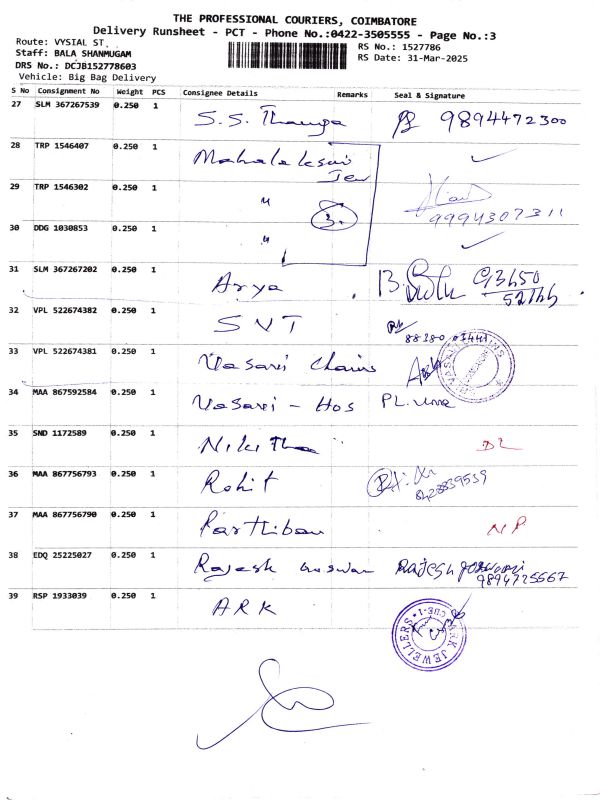 THE PROFESSIONAL COURIERS, COIMBATORE
Delivery Runsheet - PCT - Phone No.:0422-3505555 - Page No.:3
Route: VYSIAL ST
Staff: BALA SHANMUGAM
DRS No.: DCJB152778603
Vehicle: Big Bag Delivery
RS No.: 1527786
RS Date: 31-Mar-2025
S No Consignment No Weight PCS Consignee Details Remarks Seal & Signature
27 SLM 367267539 0.250 1 S.S. Thanga 9894472300
28 TRP 1546407 0.250 1 Mahalaksmi Jew
29 TRP 1546302 0.250 1 " 3. 9994307311
30 DDG 1030853 0.250 1 "
31 SLM 367267202 0.250 1 Arya B.
32 VPL 522674382 0.250 1 SNT 88380 03441
33 VPL 522674381 0.250 1 Vasavi Chains
34 MAA 867592584 0.250 1 Vasavi - Hos PL. Urre
35 SND 1172589 0.250 1 Nikitha DL
36 MAA 867756793 0.250 1 Rohit
37 MAA 867756790 0.250 1 Parthiban NP
38 EDQ 25225027 0.250 1 Rajesh Goswami Rajesh Goswami
9894725567
39 RSP 1933039 0.250 1 ARK
ARK JEWELLERS * CBE-1 *